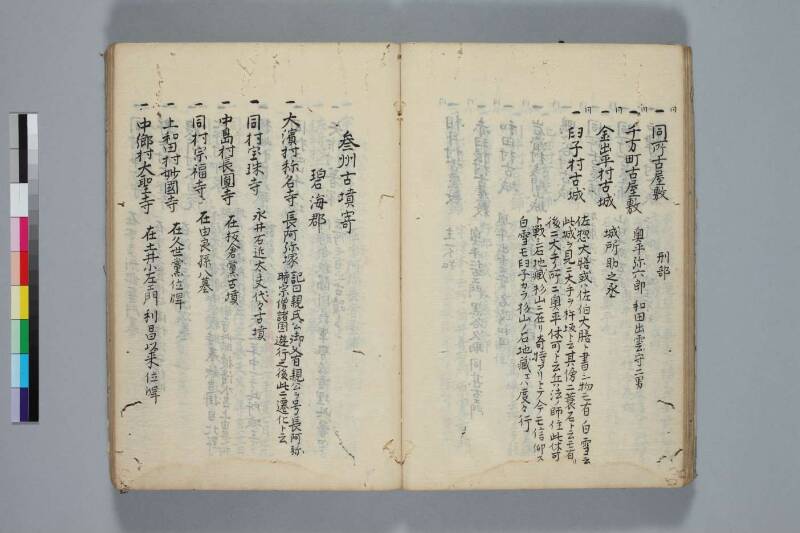 一 同所古屋敷 刑部
一 千万町古屋敷 奥平弥六郎 和田出雲守二男
一 金出平村古城 城所助之丞
一 臼子村古城 佐惣大膳或ハ佐伯大膳ト書シ物ニ有 白雪云
此城ヲ見ニ大手ヲ 坂ト云其傍ニ蓑石ト云モ有
後ニ大手ノ所ニ奥平休可ト云兵法ノ師住此休可
ト戦シ石地蔵杉山ニ在リ奇特アリトテ今モ信仰ス
白雪モ臼子カラ杉山ノ石地蔵エハ度々行
叁州古墳寄
碧海郡
一 大濱村称名寺 長阿弥塚 記曰親氏公御父有親公ヲ号長阿弥
時宗僧諸国遊行之後此ニ遷化ト云
一 同村宝珠寺 永井右近太夫代々古墳
一 中島村長圓寺 在板倉黨古墳
一 同村宗福寺 在由良孫八墓
一 上和田村妙國寺 在久世黨位牌
一 中郷村大聖寺 在土井小左エ門利昌以来位牌